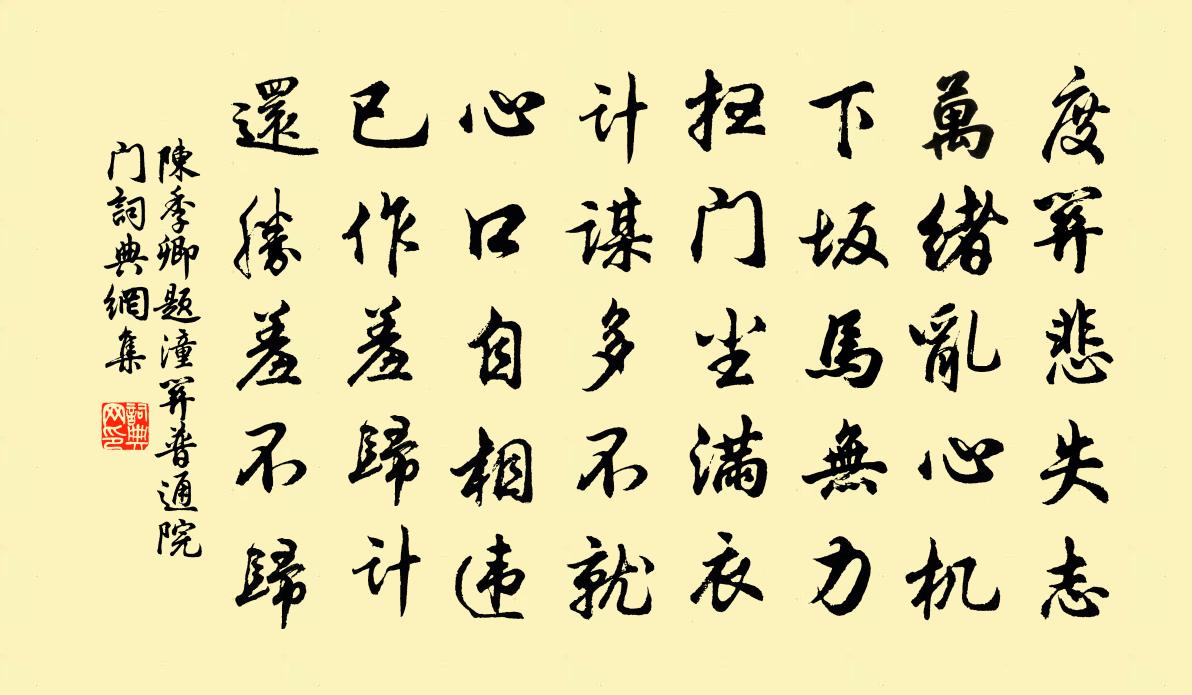 度关悲失志
萬緒亂心机
下坂馬無力
扫门尘滿衣
计謀多不就
心口自相违
已作羞歸计
還勝羞不歸
陳季卿题潼关普通院
门詞典網集
詞典
网印